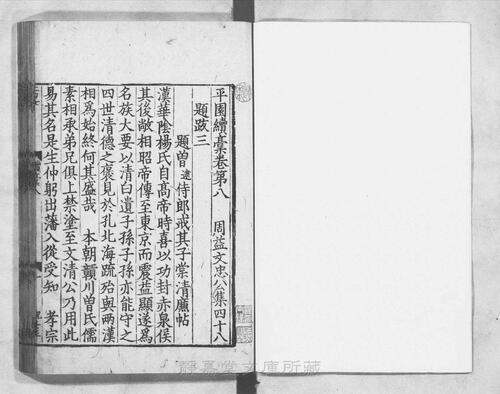 平園續藁卷第八　周益文忠公集四十八
題跋三
題曽逮侍郎戒其子棠清廉帖
漢華隂楊氏自髙帝時喜以功封赤泉侯
其後敞相昭帝傳至東京而震益顯遂為
名族大要以清白遺子孫子孫亦能守之
四世清德之褒見於孔北海䟽殆與兩漢
相為始終何其盛哉　本朝贑川曽氏儒
素相承弟兄俱上禁塗至文清公乃用此
易其名是生仲躬出藩入從受知　孝宗
静嘉堂文庫所蔵